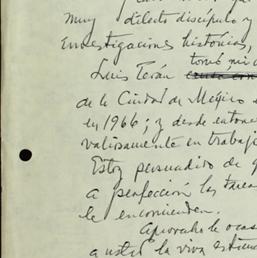 muy dilecto discípulo y
investigaciones históricas,
tomó mi c
Luis Terán
de la Ciudad de México e
en 1966; y desde entonc
valiosamente en trabajo
Estoy persuadido de q
a perfección las tarea
le encomienden.
Aprovecho la ocas
a usted la viva estima